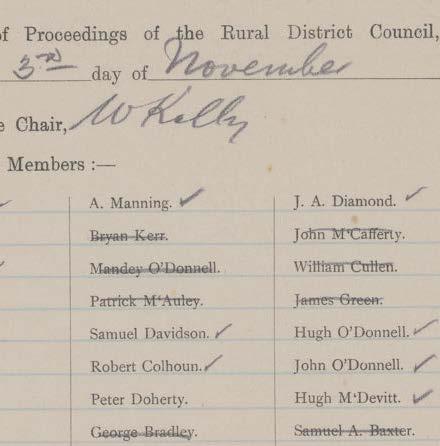 of Proceedings of the Rural District Council,
3rd day of November
e Chair, W Kelly
Members :—
A. Manning. ✓ J. A. Diamond. ✓
Bryan Kerr. John M‘Cafferty.
Mandey O’Donnell. William Cullen.
Patrick M‘Auley. James Green.
Samuel Davidson. ✓ Hugh O’Donnell. ✓
Robert Colhoun. ✓ John O’Donnell. ✓
Peter Doherty. Hugh M‘Devitt. ✓
George Bradley. Samuel A. Baxter.